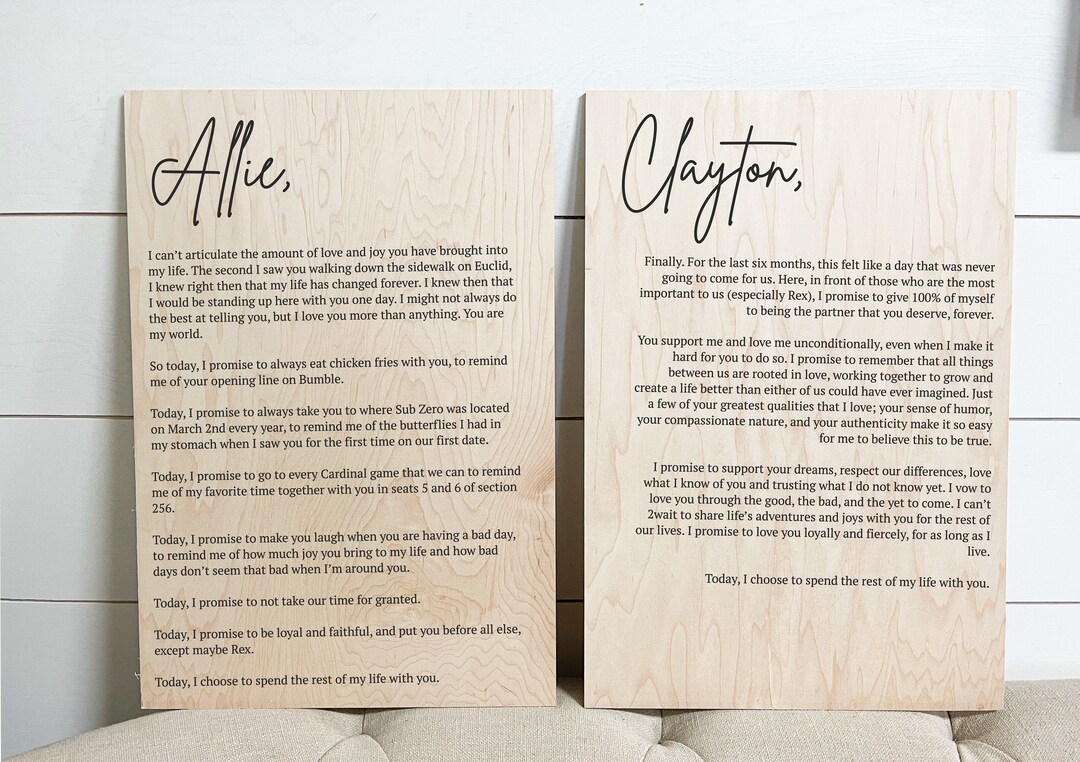 Allie,
I can't articulate the amount of love and joy you have brought into
my life. The second I saw you walking down the sidewalk on Euclid,
I knew right then that my life has changed forever. I knew then that
I would be standing up here with you one day. I might not always do
the best at telling you, but I love you more than anything. You are
my world.
So today, I promise to always eat chicken fries with you, to remind
me of your opening line on Bumble.
Today, I promise to always take you to where Sub Zero was located
on March 2nd every year, to remind me of the butterflies I had in
my stomach when I saw you for the first time on our first date.
Today, I promise to go to every Cardinal game that we can to remind
me of my favorite time together with you in seats 5 and 6 of section
256.
Today, I promise to make you laugh when you are having a bad day,
to remind me of how much joy you bring to my life and how bad
days don't seem that bad when I'm around you.
Today, I promise to not take our time for granted.
Today, I promise to be loyal and faithful, and put you before all else,
except maybe Rex.
Today, I choose to spend the rest of my life with you.
Clayton,
Finally. For the last six months, this felt like a day that was never
going to come for us. Here, in front of those who are the most
important to us (especially Rex), I promise to give 100% of myself
to being the partner that you deserve, forever.
You support me and love me unconditionally, even when I make it
hard for you to do so. I promise to remember that all things
between us are rooted in love, working together to grow and
create a life better than either of us could have ever imagined. Just
a few of your greatest qualities that I love; your sense of humor,
your compassionate nature, and your authenticity make it so easy
for me to believe this to be true.
I promise to support your dreams, respect our differences, love
what I know of you and trusting what I do not know yet. I vow to
love you through the good, the bad, and the yet to come. I can't
2wait to share life's adventures and joys with you for the rest of
our lives. I promise to love you loyally and fiercely, for as long as I
live.
Today, I choose to spend the rest of my life with you.